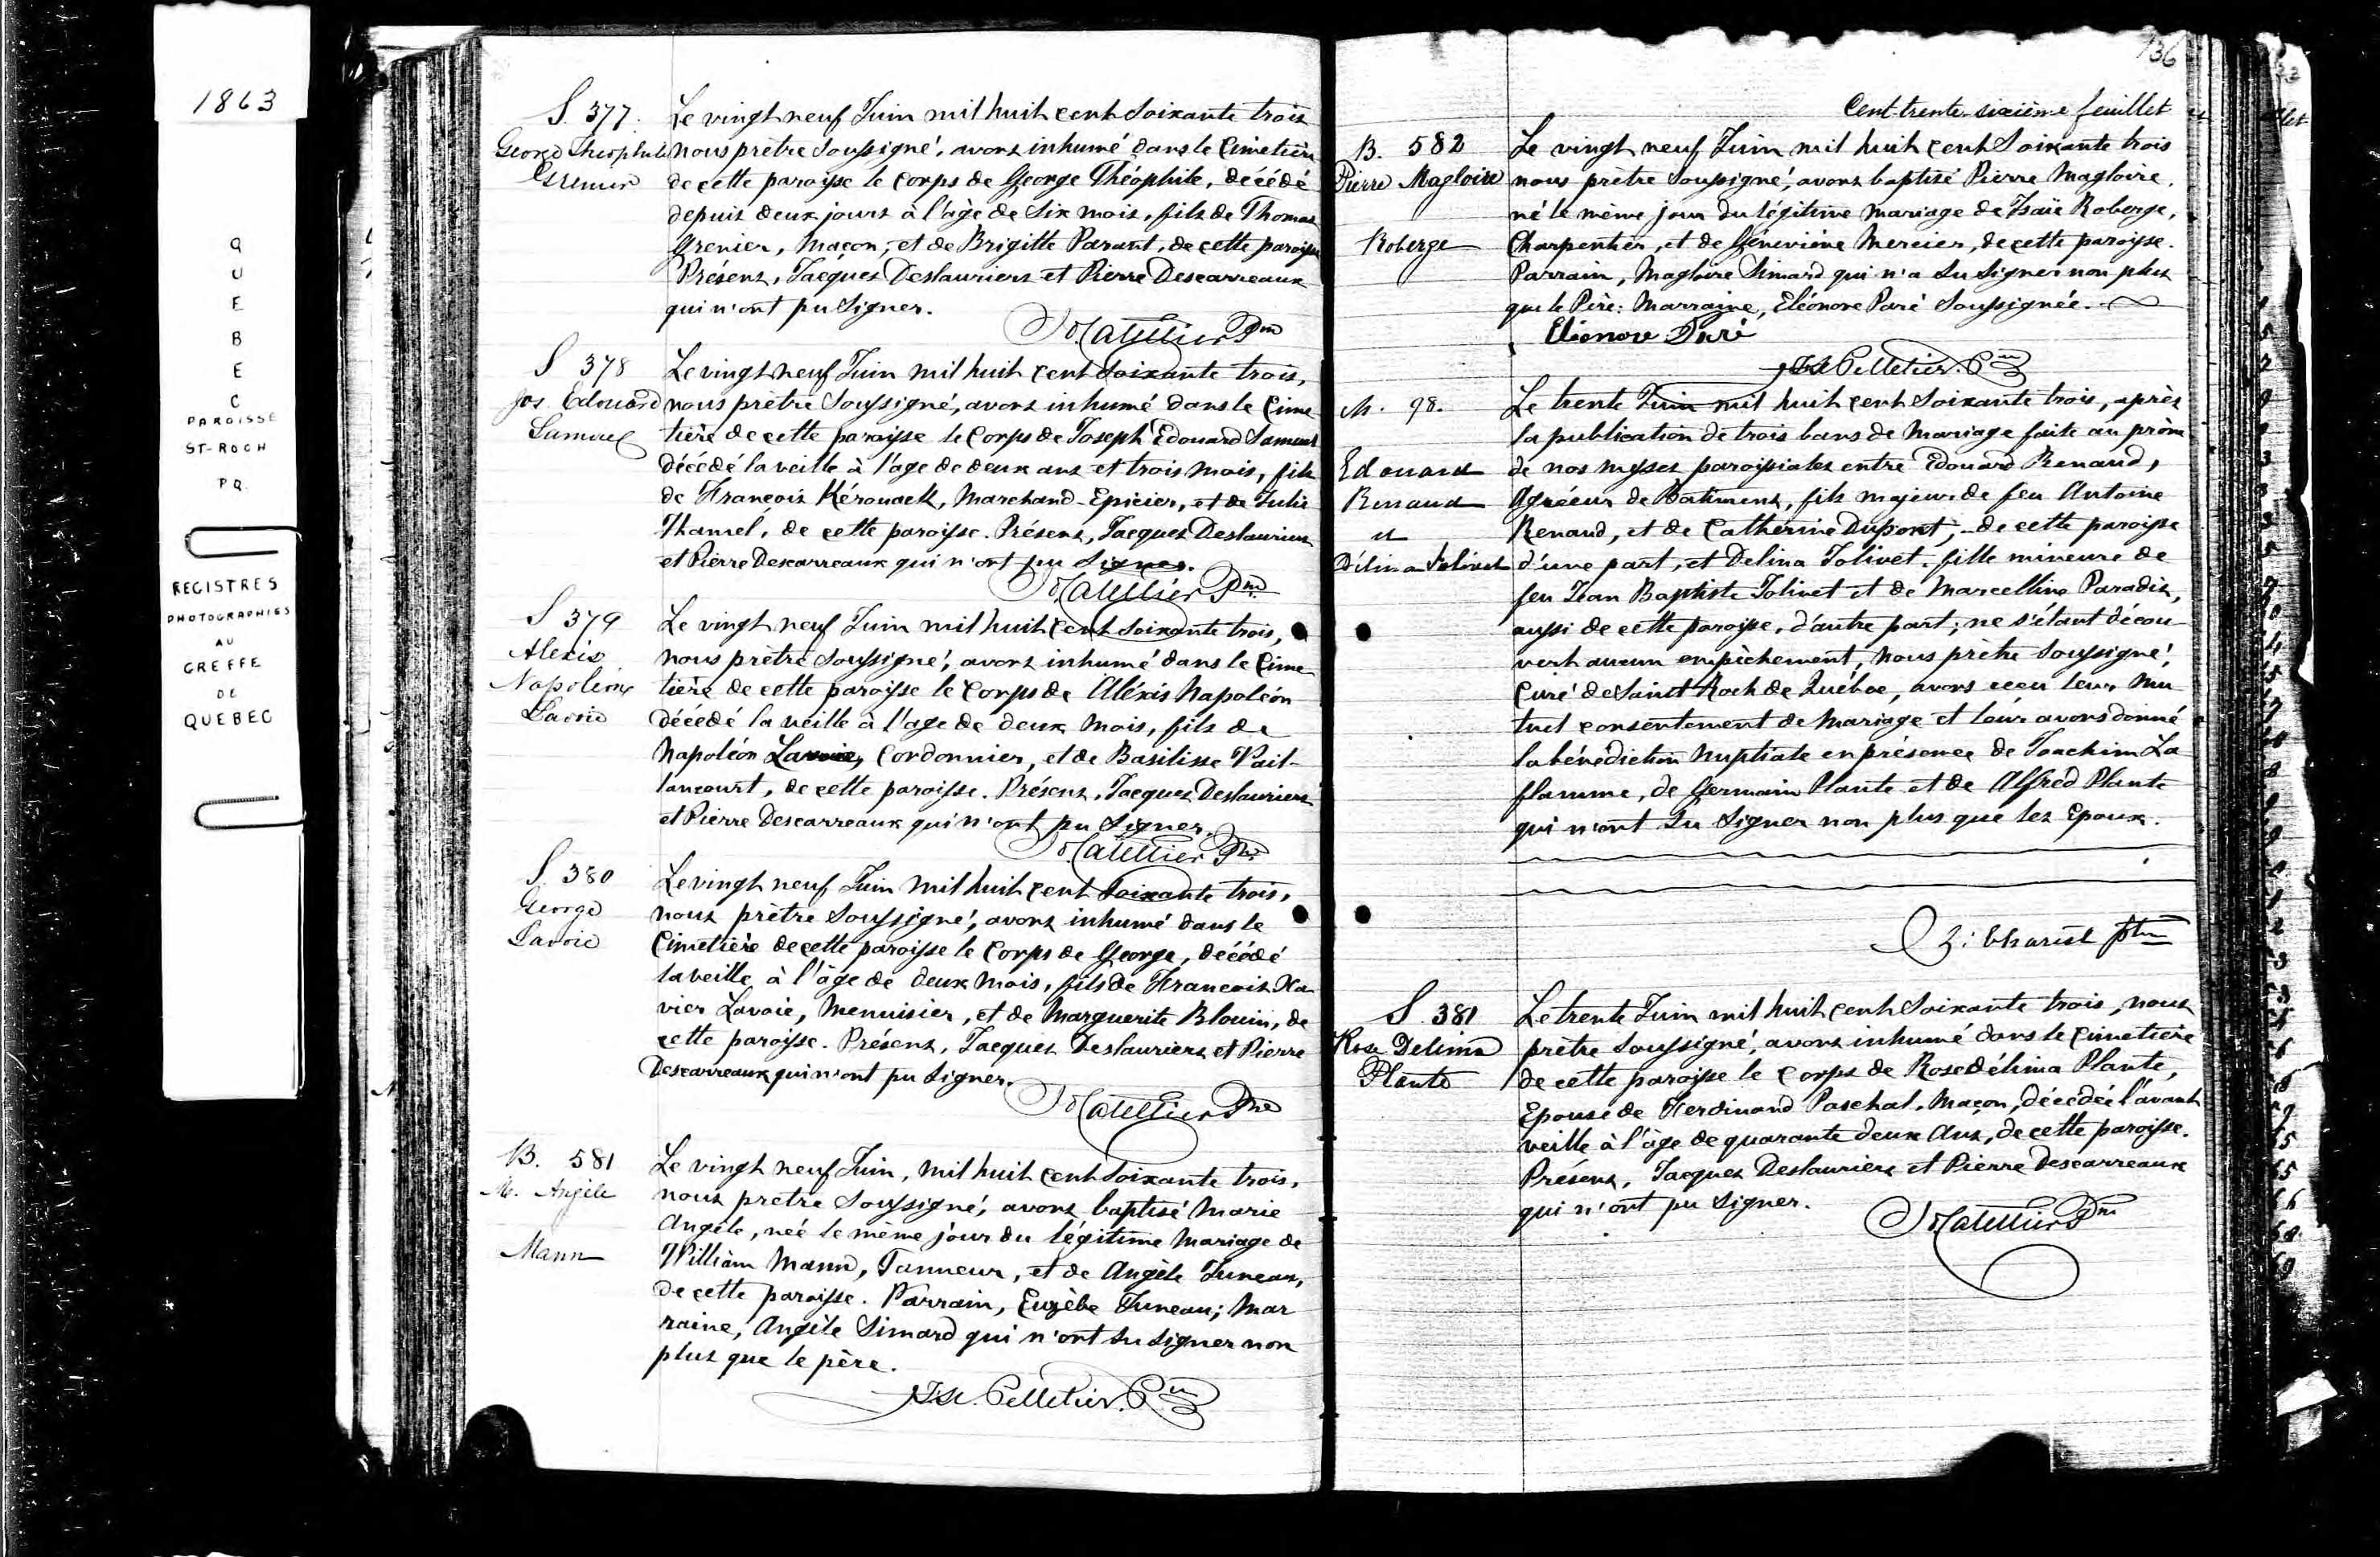 1863
QUEBEC
PAROISSE
ST-ROCH
P.Q.
REGISTRES
PHOTOGRAPHIES
AU
GREFFE
DE
QUEBEC
S. 377.
George Théophile
Grenier
Le vingt neuf Juin mil huit cent soixante trois
nous prêtre soussigné, avons inhumé dans le Cimetière
de cette paroisse le corps de George Théophile, décédé
depuis deux jours à l'âge de six mois, fils de Thomas
Grenier, Maçon, et de Brigitte Parant, de cette paroisse
Présens, Jacques Deslauriers et Pierre Descarreaux
qui n'ont pu signer.
S 378
Jos. Edouard
Samuel
Le vingt neuf Juin mil huit cent soixante trois,
nous prêtre soussigné, avons inhumé dans le Cime
tière de cette paroisse le Corps de Joseph Edouard Samuel
décédé la veille à l'age de deux ans et trois mois, fils
de François Kérouack, Marchand-Epicier, et de Julie
Hamel, de cette paroisse. Présens, Jacques Deslauriers
et Pierre Descarreaux qui n'ont pu signer.
S 379
Alexis
Napoléon
Lavoie
Le vingt neuf Juin mil huit cent soixante trois,
nous prêtre soussigné, avons inhumé dans le Cime
tière de cette paroisse le Corps de Aléxis Napoléon
décédé la veille à l'age de deux mois, fils de
Napoléon Lavoie, Cordonnier, et de Basilisse Vail-
lancourt, de cette paroisse. Présens, Jacques Deslauriers
et Pierre Descarreaux qui n'ont pu signer.
S. 380
George
Lavoie
Le vingt neuf Juin mil huit cent soixante trois,
nous prêtre soussigné, avons inhumé dans le
Cimetière de cette paroisse le Corps de George, décédé
la veille à l'âge de deux mois, fils de François Xa
vier Lavoie, Menuisier, et de Marguerite Blouin, de
cette paroisse. Présens, Jacques Deslauriers et Pierre
Descarreaux qui n'ont pu signer.
B. 581
M. Angèle
Mann
Le vingt neuf Juin, mil huit cent soixante trois,
nous prêtre soussigné, avons baptisé Marie
Angèle, née le même jour du légitime mariage de
William Mann, Tanneur, et de Angèle Juneau,
de cette paroisse. Parrain, Eusèbe Juneau; Mar
raine, Angèle Simard qui n'ont su signer non
plus que le père.
Pelletier. Ptre
136
Cent-trente-sixième feuillet
B. 582
Pierre Magloire
Roberge
Le vingt neuf Juin mil huit cent soixante trois
nous prêtre soussigné, avons baptisé Pierre Magloire,
né le même jour du légitime mariage de Isaïe Roberge,
Charpentier, et de Géneviève Mercier, de cette paroisse.
Parrain, Magloire Simard qui n'a su signer non plus
que le Père: Marraine, Eléonore Paré soussignée.
Eléonore Paré
Pelletier. Ptre
M. 98.
Edouard
Renaud
et
Délina Jolivet
Le trente Juin mil huit cent soixante trois, après
la publication de trois bans de mariage faite au prône
de nos messes paroissiales entre Edouard Renaud,
Agréeur de Batimens, fils majeur de feu Antoine
Renaud, et de Catherine Dupont, de cette paroisse
d'une part, et Delina Jolivet, fille mineure de
feu Jean Baptiste Jolivet et de Marcelline Paradis,
aussi de cette paroisse, d'autre part; ne s'étant décou
vert aucun empêchement, nous prêtre soussigné,
Curé de Saint Roch de Québec, avons reçu leur mu
tuel consentement de mariage et leur avons donné
la bénédiction nuptiale en présence de Joachim La
flamme, de Germain Plante et de Alfred Plante
qui n'ont su signer non plus que les Epoux.
Z. Charest ptre
S. 381
Rose Delima
Plante
Le trente Juin mil huit cent soixante trois, nous
prêtre soussigné, avons inhumé dans le cimetière
de cette paroisse le corps de Rose délima Plante,
Epouse de Ferdinand Paschal, Maçon, décédée l'avant
veille à l'âge de quarante deux ans, de cette paroisse.
Présens, Jacques Deslauriers et Pierre Descarreaux
qui n'ont pu signer.